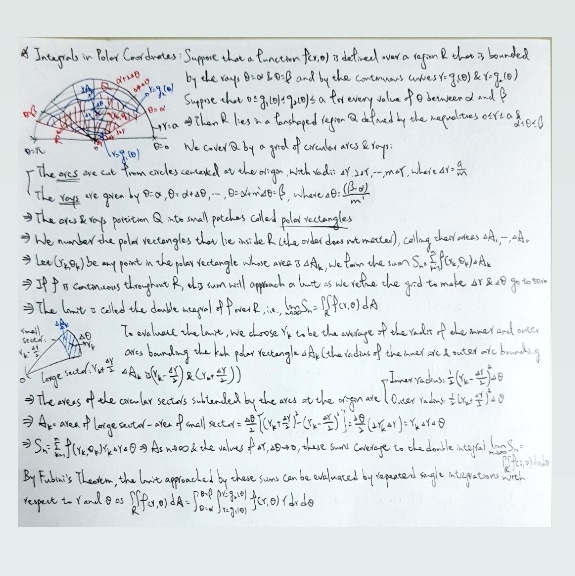 Integrals in Polar Coordinates: Suppose that a function f(r,θ) is defined over a region R that is bounded
by the rays θ=α & θ=β and by the continuous curves r=g₁(θ) & r=g₂(θ)
Suppose that 0≤g₁(θ)≤g₂(θ)≤a for every value of θ between α and β
⇒ Then R lies in a fanshaped region Q defined by the inequalities 0≤r≤a & α≤θ≤β
We cover Q by a grid of circular arcs & rays:
α+2Δθ
Q
r=g₂(θ)
θ=β
θ=α
r=a
θ=π
θ=0
r=g₁(θ)
The arcs are cut from circles centered at the origin, with radii Δr, 2Δr, --, mΔr, where Δr=a/m
The rays are given by θ=α, θ=α+Δθ, --, θ=α+m'Δθ=β, where Δθ=(β-α)/m'
⇒ The arcs & rays partition Q into small patches called polar rectangles
⇒ We number the polar rectangles that lie inside R (the order does not matter), calling their areas ΔA₁, -- ΔAₙ
⇒ Let (rₖ,θₖ) be any point in the polar rectangle whose area is ΔAₖ, we form the sum Sₙ=Σₖ₌₁ⁿ f(rₖ,θₖ)ΔAₖ
⇒ If f is continuous throughout R, this sum will approach a limit as we refine the grid to make Δr & Δθ go to zero
⇒ The limit is called the double integral of f over R, i.e., lim n→∞ Sₙ=∬_R f(r,θ) dA
small sector: rₖ-Δr/2
ΔAₖ
Δθ
rₖ
0
Large sector: rₖ+Δr/2
To evaluate the limit, we choose rₖ to be the average of the radii of the inner and outer
arcs bounding the kth polar rectangle ΔAₖ (the radius of the inner arc & outer arc bounding
ΔAₖ is (rₖ-Δr/2) & (rₖ+Δr/2))
⇒ The areas of the circular sectors subtended by the arcs at the origin are
Inner radius: ½(rₖ-Δr/2)²Δθ
Outer radius: ½(rₖ+Δr/2)²Δθ
⇒ Aₖ= area of large sector - area of small sector = Δθ/2[(rₖ+Δr/2)²-(rₖ-Δr/2)²]=Δθ/2(2rₖΔr)=rₖΔrΔθ
⇒ Sₙ=Σₖ₌₁ⁿ f(rₖ,θₖ)rₖΔrΔθ ⇒ As n→∞ & the values of Δr,Δθ→0, these sums converge to the double integral lim n→∞ Sₙ= ∬_R f(r,θ) r dr dθ
By Fubini's Theorem, the limit approached by these sums can be evaluated by repeated single integrations with
respect to r and θ as ∬_R f(r,θ) dA=∫_{θ=α}^{θ=β}∫_{r=g₁(θ)}^{r=g₂(θ)} f(r,θ) r dr dθ